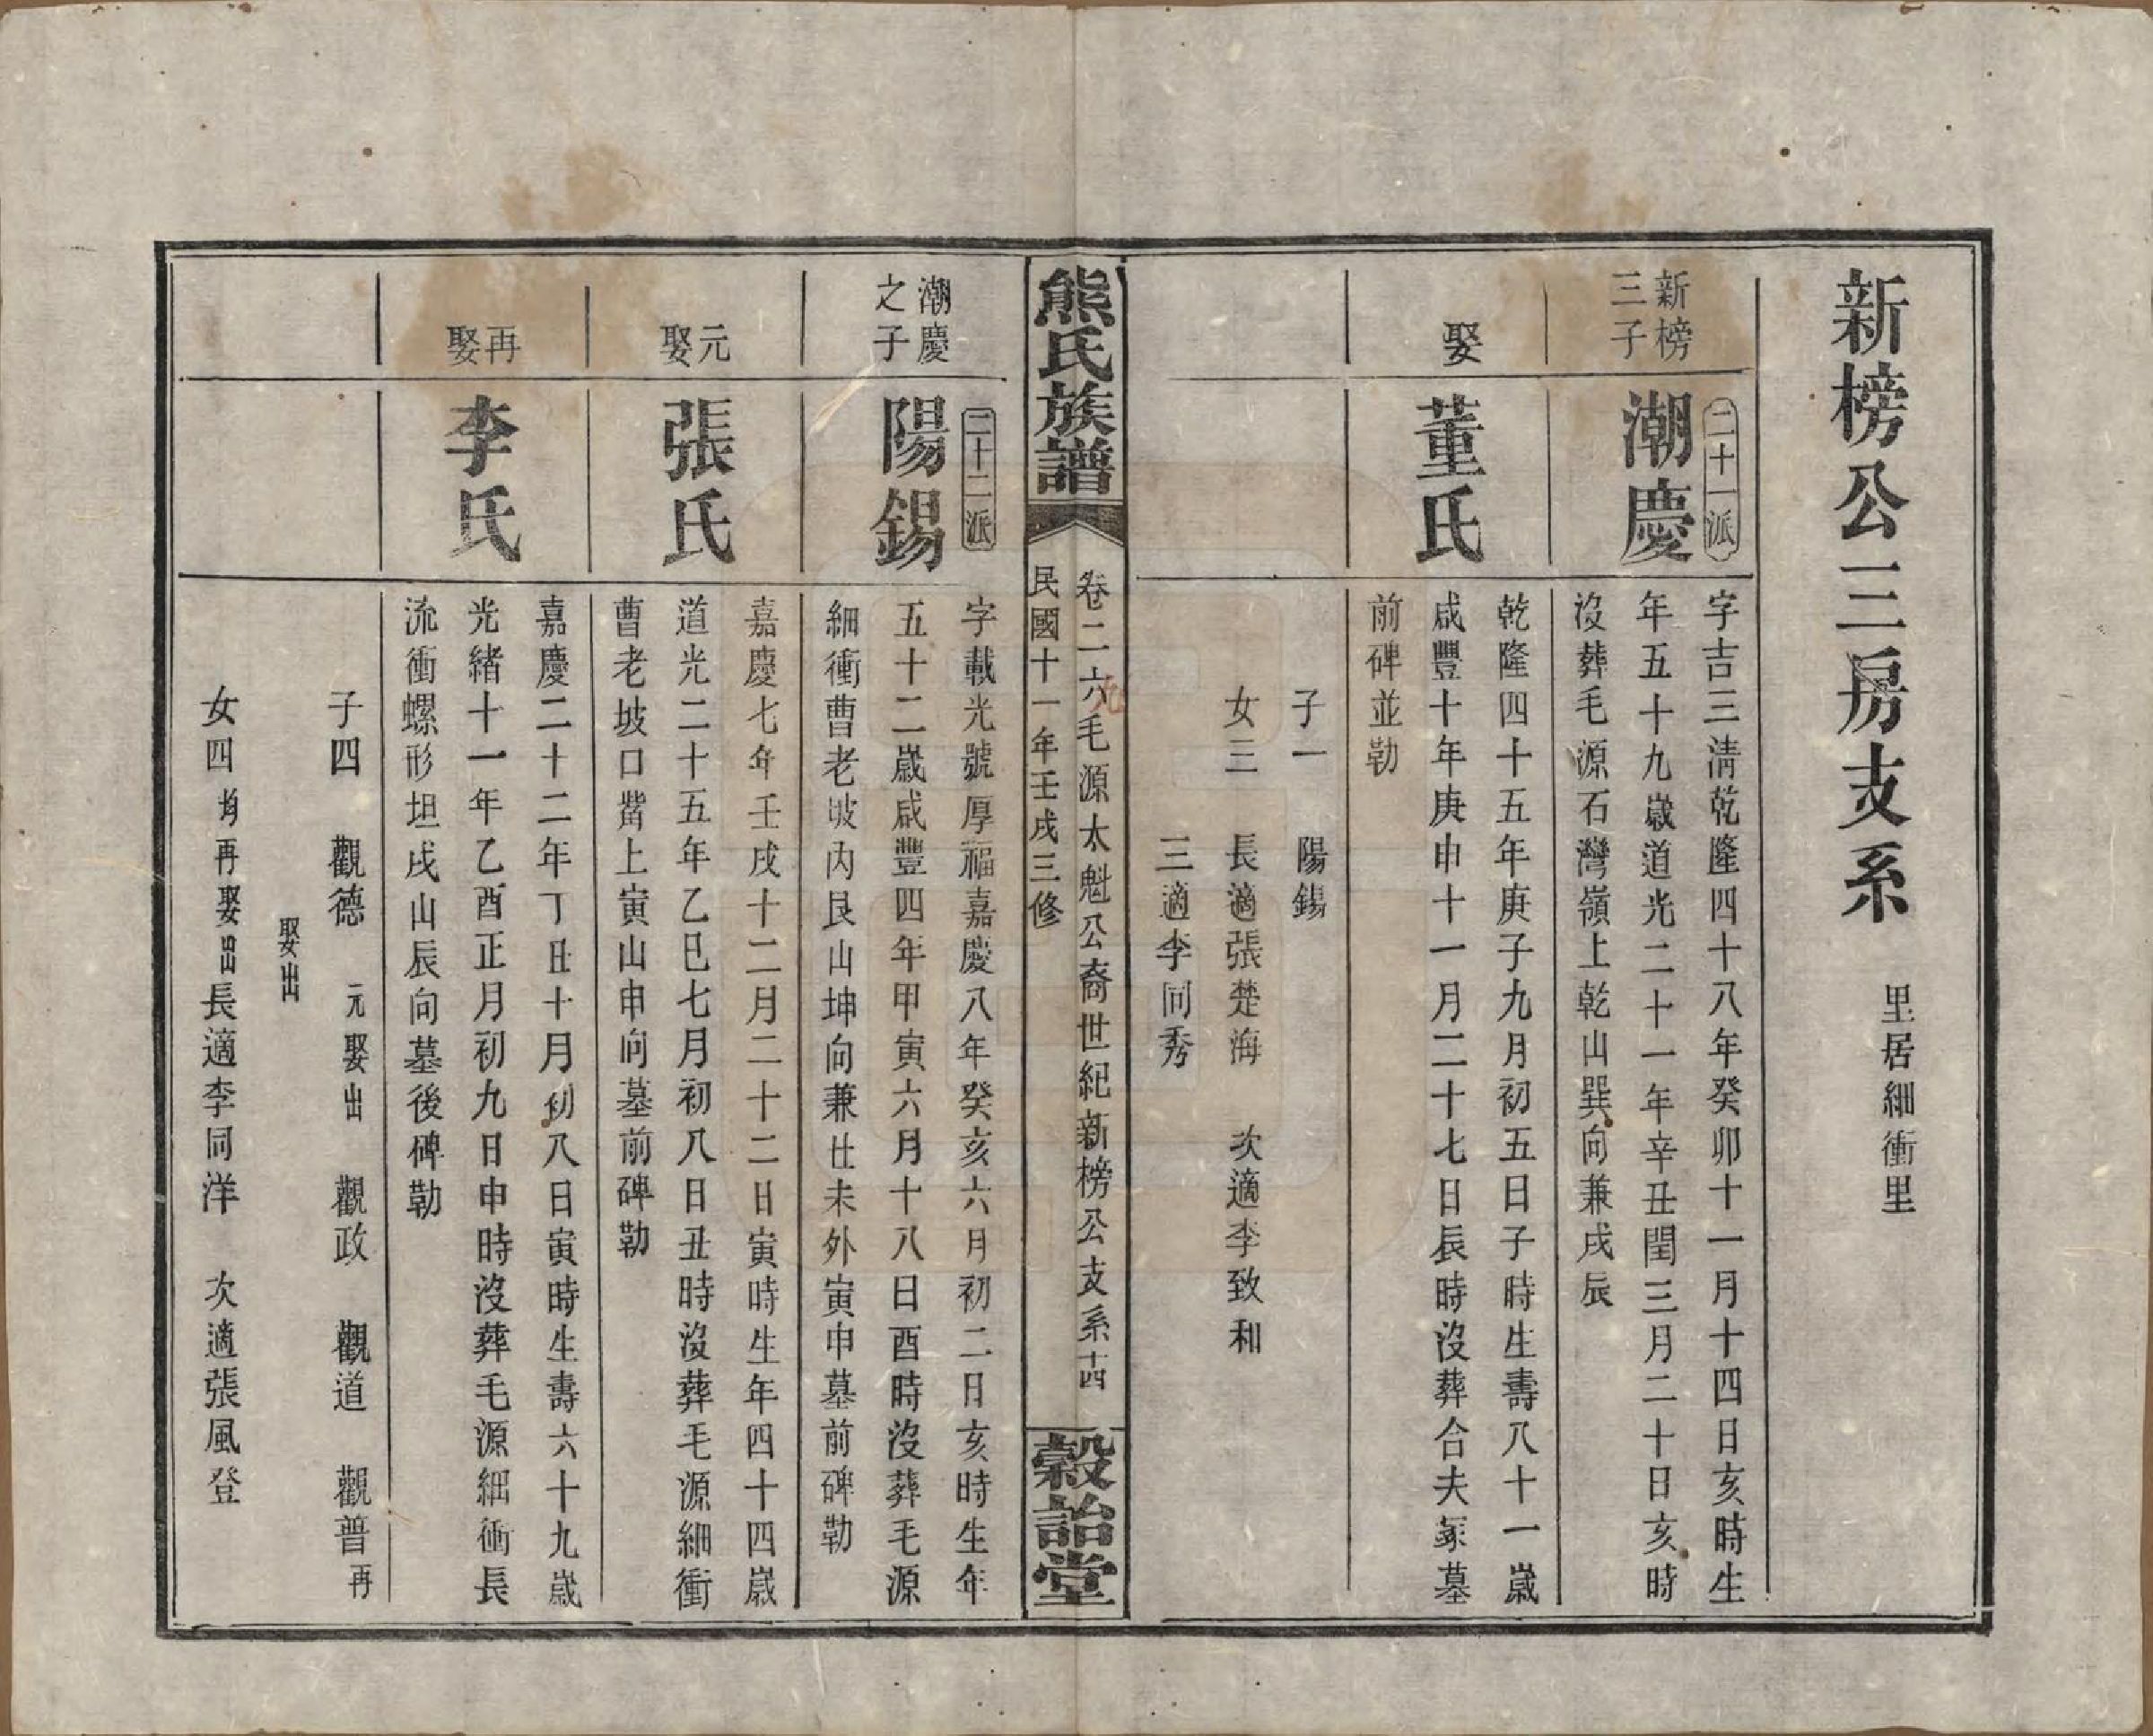 新榜公三房支系 里居細衝里
新榜
三子
二十一派
潮慶
字吉三清乾隆四十八年癸卯十一月十四日亥時生
年五十九歲道光二十一年辛丑閏三月二十日亥時
沒葬毛源石灣嶺上乾山巽向兼戌辰
娶
董氏
乾隆四十五年庚子九月初五日子時生壽八十一歲
咸豐十年庚申十一月二十七日辰時沒葬合夫冢墓
前碑並勒
子一 陽錫
女三 長適張楚海 次適李致和
三適李同秀
熊氏族譜
卷二六 毛源太魁公裔世紀新榜公支系 十四
九
民國十一年壬戌三修
穀詒堂
潮慶
之子
二十二派
陽錫
字載光號厚福嘉慶八年癸亥六月初二日亥時生年
五十二歲咸豐四年甲寅六月十八日酉時沒葬毛源
細衝曹老坡內艮山坤向兼丑未外寅申墓前碑勒
元
娶
張氏
嘉慶七年壬戌十二月二十二日寅時生年四十四歲
道光二十五年乙巳七月初八日丑時沒葬毛源細衝
曹老坡口嵛上寅山申向墓前碑勒
再
娶
李氏
嘉慶二十二年丁丑十月初八日寅時生壽六十九歲
光緒十一年乙酉正月初九日申時沒葬毛源細衝長
流衝螺形坦戌山辰向墓後碑勒
子四 觀德 元娶出 觀政 觀道 觀普 再
娶出
女四 均再娶出 長適李同洋 次適張風登